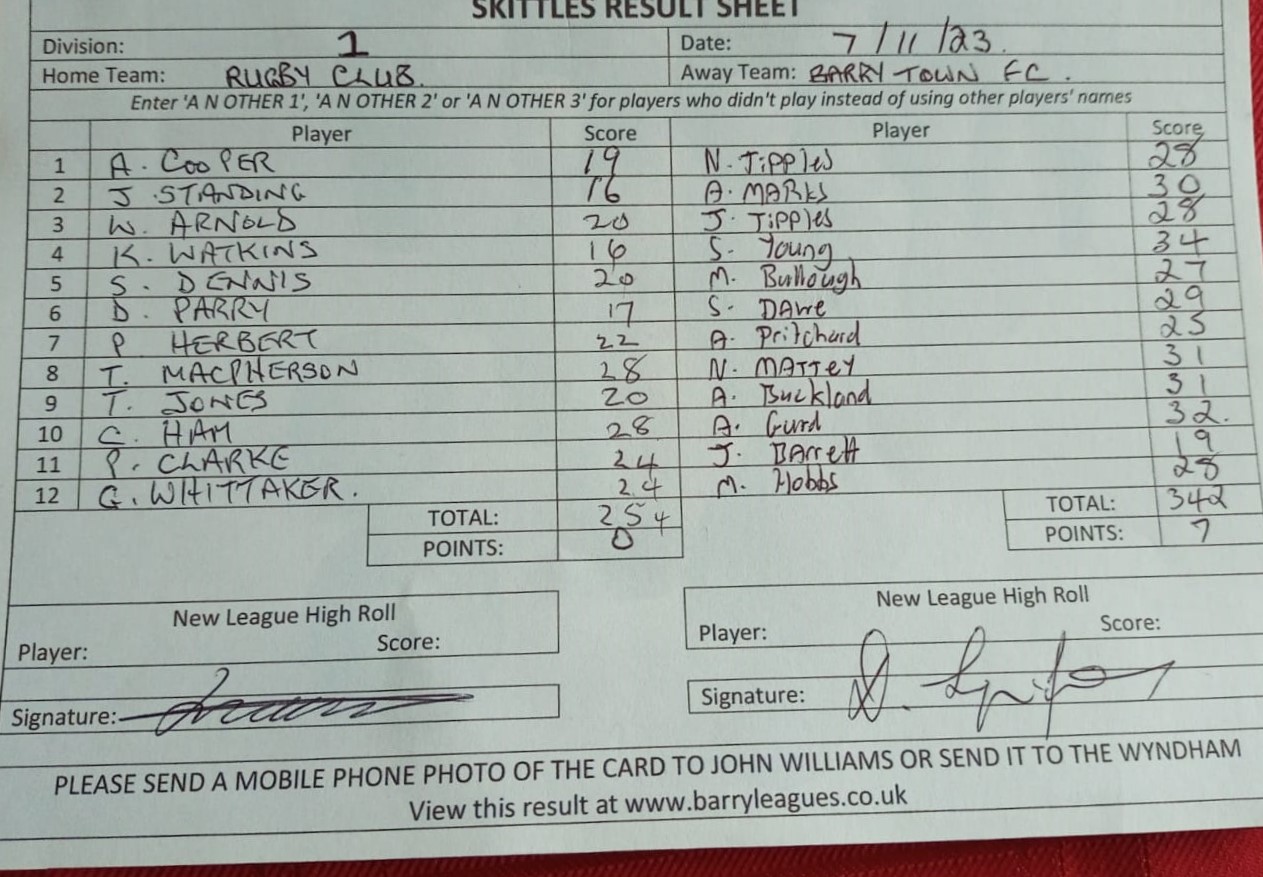 SKITTLES RESULT SHEET
Division: 1 Date: 7/11/23.
Home Team: RUGBY CLUB. Away Team: BARRY TOWN FC.
Enter 'A N OTHER 1', 'A N OTHER 2' or 'A N OTHER 3' for players who didn't play instead of using other players' names
Player Score Player Score
1 A. COOPER 19 N. Tipples 28
2 J. STANDING 16 A. MARKS 30
3 W. ARNOLD 20 J. Tipples 28
4 K. WATKINS 16 S. Young 34
5 S. DENNIS 20 M. Bullough 27
6 D. PARRY 17 S. DAWE 29
7 P HERBERT 22 A. Pritchard 25
8 T. MACPHERSON 28 N. MATTEY 31
9 T. JONES 20 A. Buckland 31
10 C. HAM 28 A. Gurd 32.
11 P. CLARKE 24 J. BARRett 19
12 G. WHITTAKER. 24 M. Hobbs 28
TOTAL: 254 TOTAL: 342
POINTS: 0 POINTS: 7
New League High Roll New League High Roll
Player: Score: Player: Score:
Signature: Signature:
PLEASE SEND A MOBILE PHONE PHOTO OF THE CARD TO JOHN WILLIAMS OR SEND IT TO THE WYNDHAM
View this result at www.barryleagues.co.uk